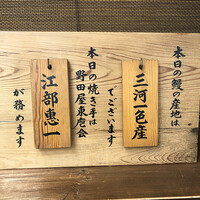 本日の鰻の産地は
三河一色産
でございます
本日の焼き手は
野田屋東庖会
江部恵一
が務めます